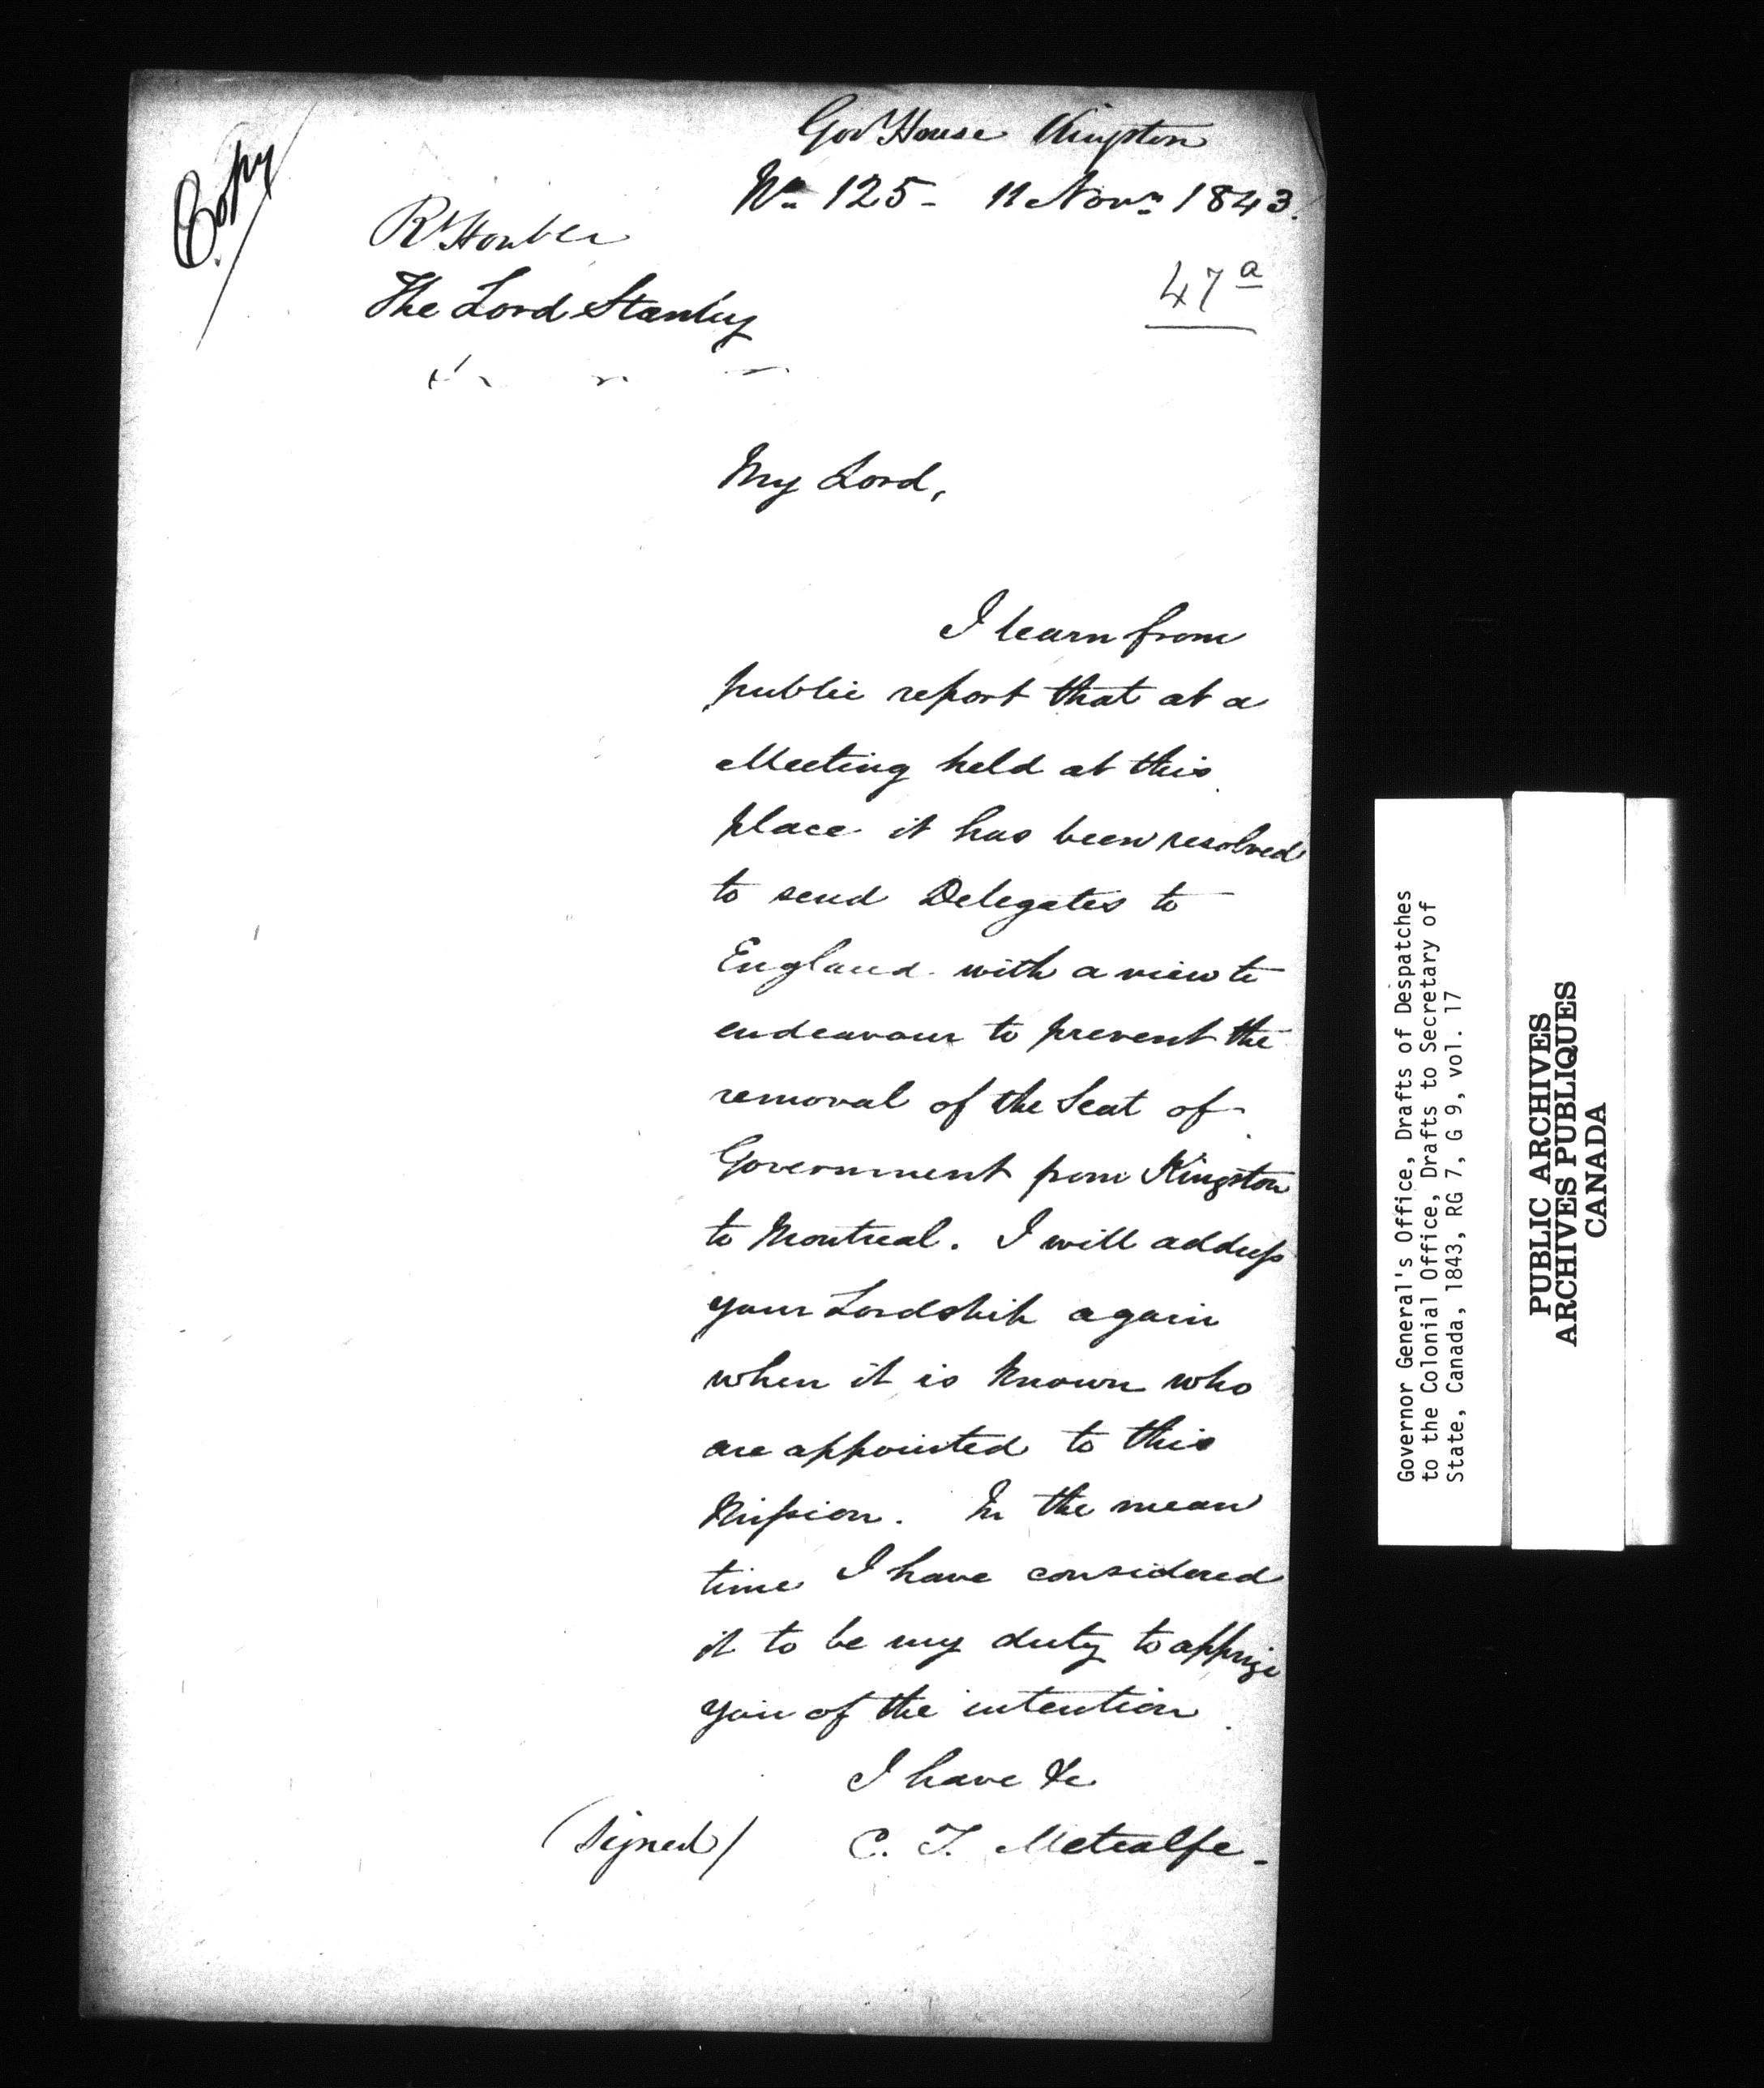 Copy
Govt House Kingston
No 125 - 11 Novr 1843.
Rt Honble
The Lord Stanley
47a
My Lord,
I learn from
public report that at a
Meeting held at this
place it has been resolved
to send Delegates to
England with a view to
endeavour to prevent the
removal of the Seat of
Government from Kingston
to Montreal. I will address
your Lordship again
when it is known who
are appointed to this
Mission. In the mean
time I have considered
it to be my duty to apprize
you of the intention.
I have &c
(Signed) C. T. Metcalfe -
Governor General's Office, Drafts of Despatches
to the Colonial Office, Drafts to Secretary of
State, Canada, 1843, RG 7, G 9, vol. 17
PUBLIC ARCHIVES
ARCHIVES PUBLIQUES
CANADA